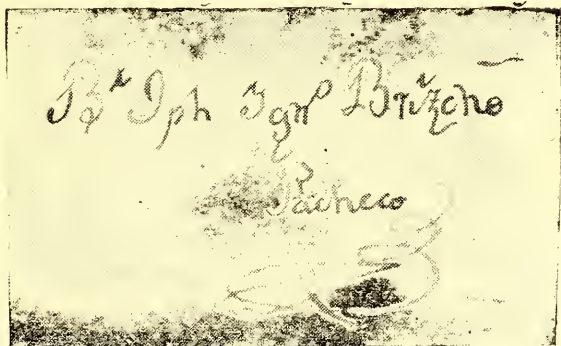 Br Jph Ygnº Brizeño
Pacheco